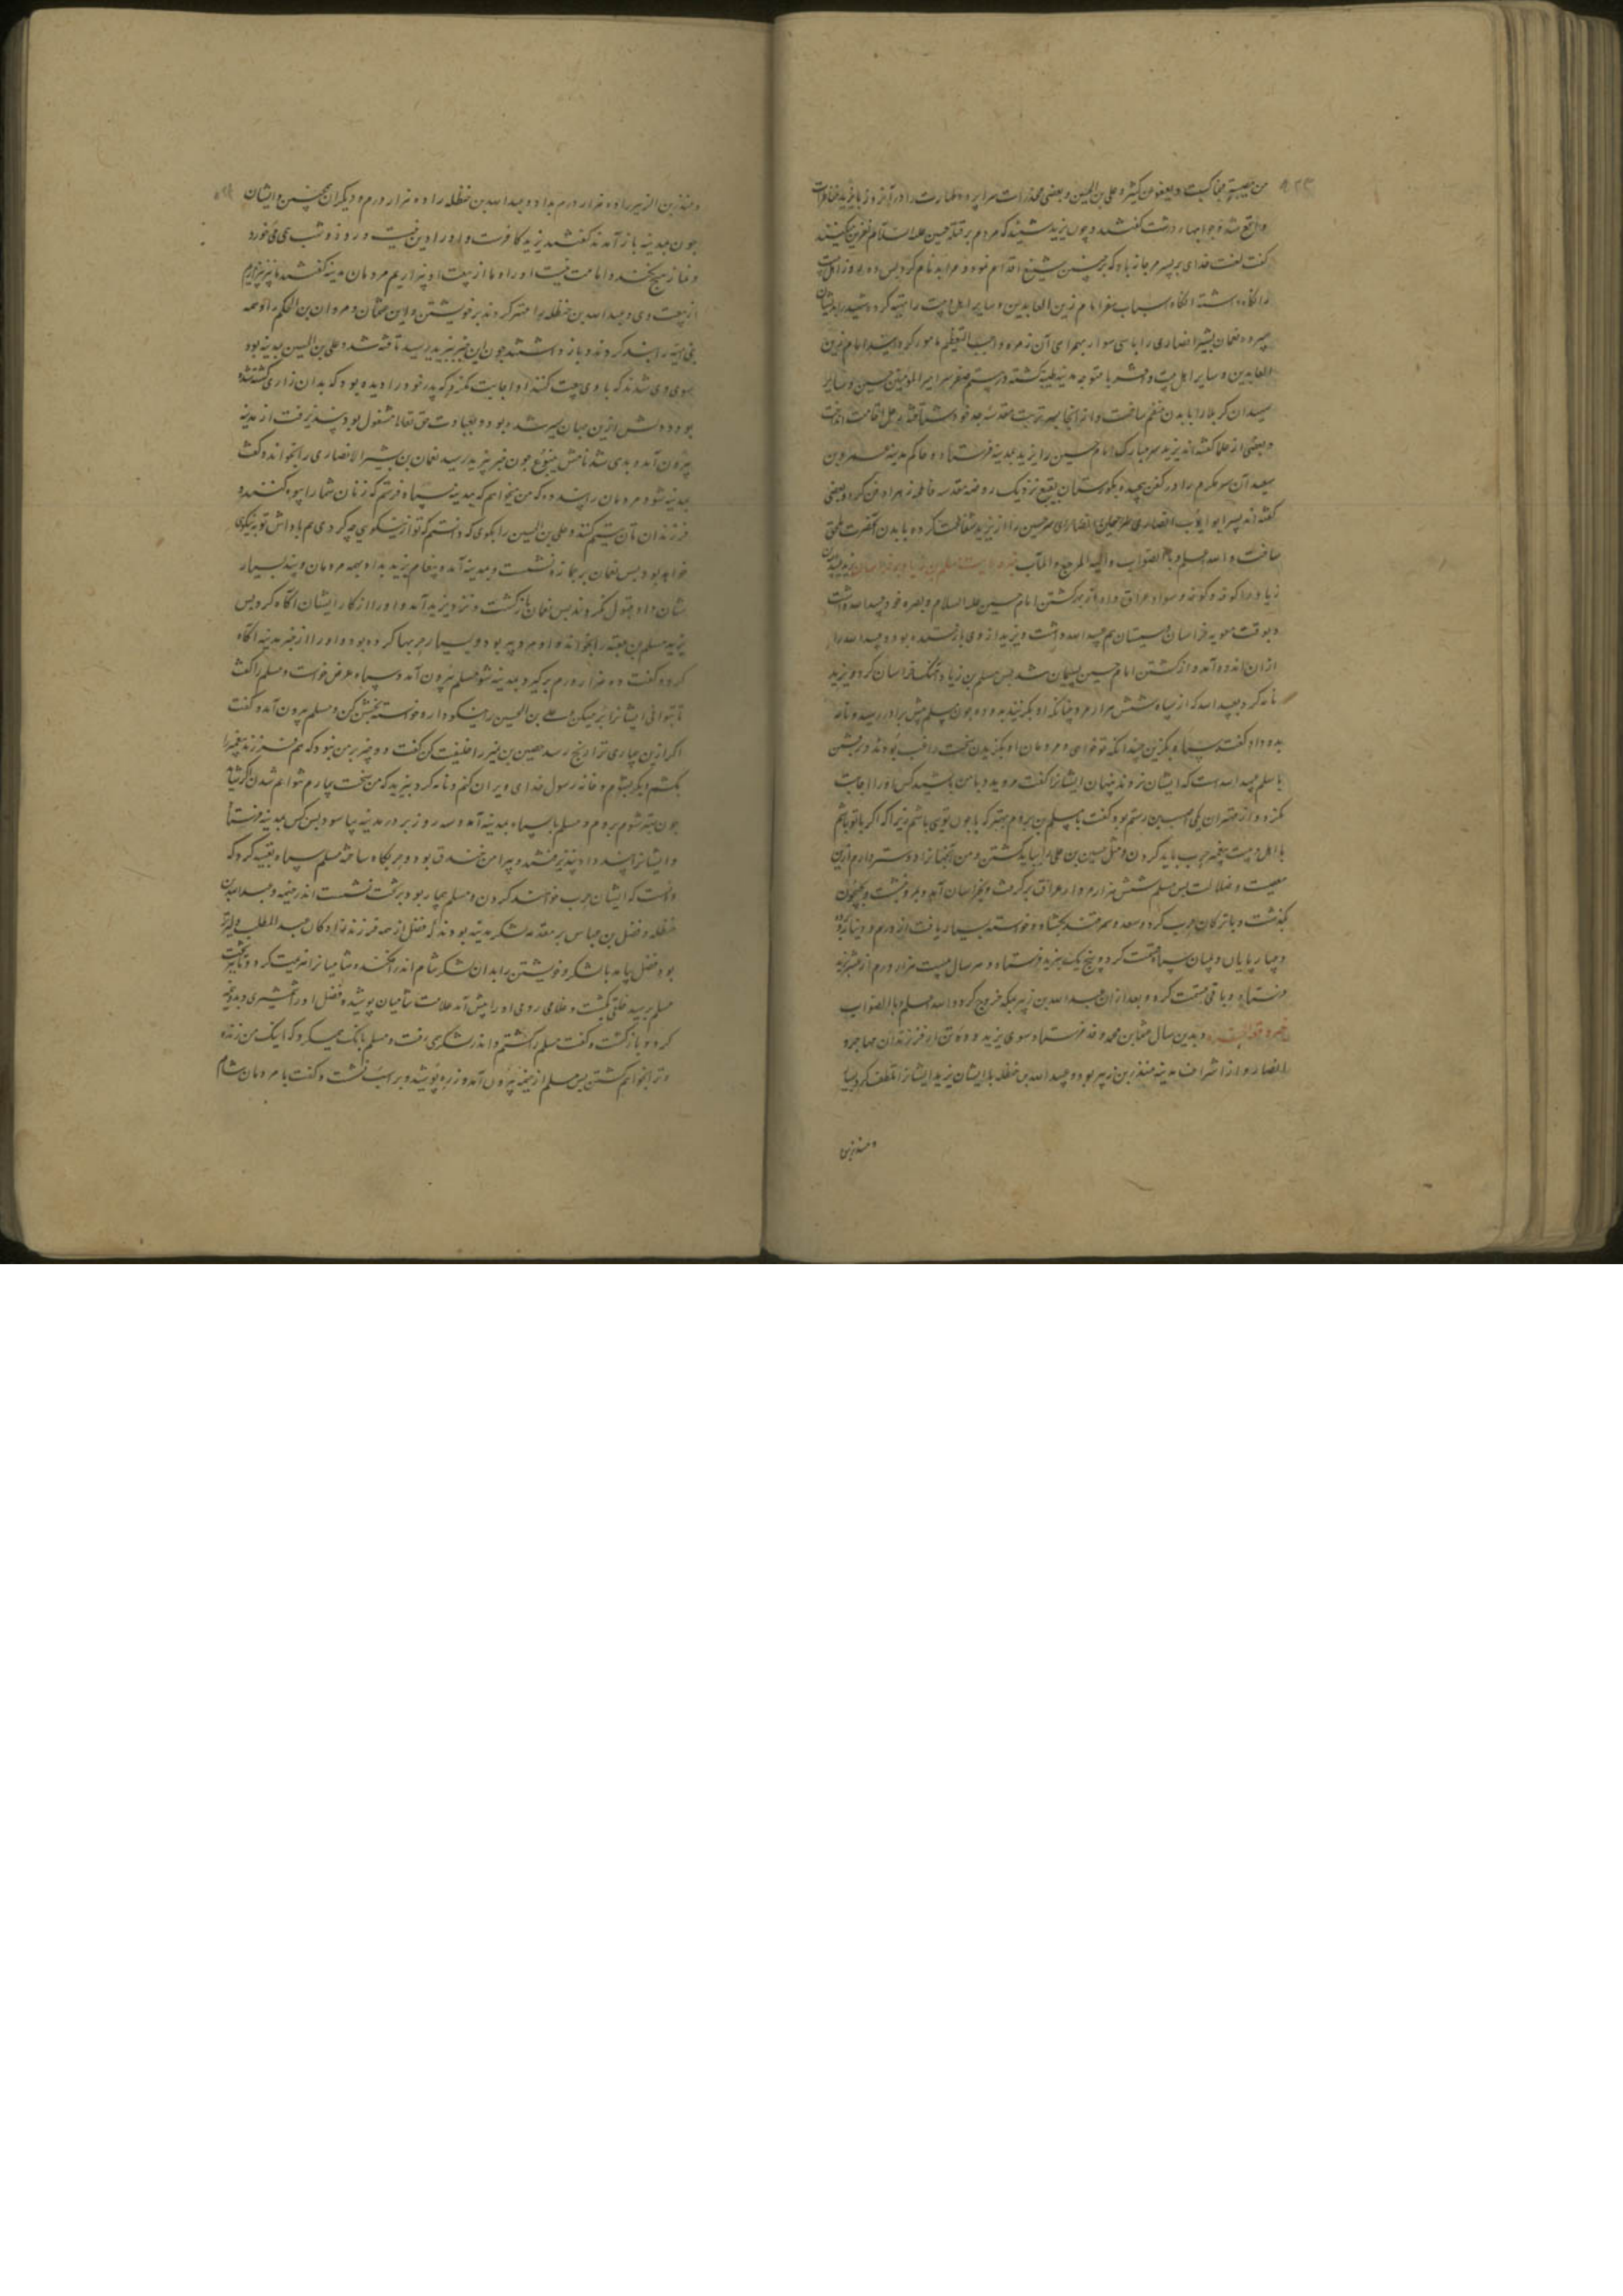 من مصیبة فبما کسبت ایدیکم و یعفو عن کثیر و علی بن الحسین و بعضی مخدرات سراپرده طهارت را در آنروز با یزید
واقع شد و جوابهاء درشت گفتند و چون یزید شنید که مردم بر قتله حسین علیه السلام نفرین میکنند
گفت لعنت خدای بر پسر مرجانه باد که بر چنین شنیع اقدام نمود و مرا بدنام کرد پس ده روز اهل بیت
را نگاه داشته آنگاه اسباب سفر امام زین العابدین و سایر اهل بیت را تهیه کرده
نعمان بشیر انصاری را با سی سوار بهمراهی آن زمره واجب التعظیم مامور گردانید امام زین
العابدین و سایر اهل بیت و عشر با متوجه مدینه طیبه گشته در بیستم صفر سر امیر المومنین حسین و سایر
شهیدان کربلا را بابدن منضم ساخت و از آنجا بسر تربت مقدسه جد خود شتافته رحل اقامت انداخت
و بعضی از علما گفته اند یزید سر مبارک امام حسین را یزید بمدینه فرستاد و حاکم مدینه عمرو بن
سعید آن سر مکرم را در کفن پیچیده بگورستان بقیع نزدیک روضه مقدسه فاطمه زهرا دفن کرد و بعضی
گفته اند پسر ابو ایوب انصاری
ساخت والله اعلم بالصواب والیه المرجع والمآب خبر ولایت مسلم بن زیاد بر خراسان یزید پسران
زیاد را کوفه و سواد عراق داد از بهر کشتن امام حسین علیه السلام و بصره خود عبید الله داشت
و بوقت معویه خراسان و سیستان هم عبید الله داشت و یزید از وی باز ستده بود و عبید الله را
از آن اندوه آمد و از کشتن امام حسین پشیمان شد پس مسلم بن زیاد آهنگ خراسان کرد و یزید
نامه کرد بعبید الله که از سپاه شش هزار مرد چنانکه او بگزیند بدو ده چون مسلم پیش برادر رسید و نامه
بدو داد گفت سپاه بگزین چندانکه تو خواهی و مردمان او بگزیدن سخت راغب بودند و برفتن
با مسلم عبید الله کس نزد ایشان پنهان ایشانرا گفت مروید و با من باشید کس او را اجابت
نکرد و از مهتران یکی
با اهل بیت پیغمبر حرب باید کردن و مثل حسین بن علی را بباید کشتن و من آنجنانرا دوست دارم ازین
معصیت و ضلالت پس مسلم شش هزار مرد از عراق برگرفت و بخراسان آمد و بمرو بنشست و بجیحون
بگذشت و با ترکان حرب کرد و سغد و سمرقند بگشاد و خواسته بسیار یافت از درم و دینار
و چهار پایان و میان سپاه قسمت کرد و پنج یک بیزید فرستاد و هر سال بیست هزار درم از
فرستاد و باقی قسمت کرد و بعد از آن عبد الله بن زبیر بمکه خروج کرد والله اعلم بالصواب
خبر وقعة الحره و بدین سال عثمان بن محمد وفد فرستاد سوی یزید و ده تن از فرزندان مهاجر و
انصار و از اشراف مدینه منذر بن زبیر بود و عبد الله بن حنظله با ایشان یزید ایشانرا تلطف کرد بسیار
و منذر بن
و منذر بن الزبیر را ده هزار درم بداد و عبد الله بن حنظله را ده هزار درم و دیگران همچنین و ایشان
چون بمدینه باز آمدند گفتند یزید کافرست و او را دین نیست و روز و شب می میخورد
و نماز هیچ نکند و امامت نیست او را و ما از بیعت او بیزاریم مردمان مدینه گفتند ما نیز بیزاریم
از بیعت وی و عبد الله بن حنظله را مهتر کردند بر خویشتن و این عثمان و مروان بن الحکم را و همه
بنی امیه را بند کردند و باز داشتند چون این خبر بیزید رسید تافته شد و علی بن الحسین بمدینه بود
سوی وی شدند که با وی بیعت کنند او اجابت نکرد که پدر خود را دیده بود که بدان زاری کشته شده
بود و دلش ازین جهان سیر شده بود و بعبادت حق تعالی مشغول بود پند نپذیرفت از مدینه
بیرون آمد و بدیهی شد نامش ینبوع چون خبر بیزید رسید نعمان بن بشیر الانصاری را بخواند و گفت
بمدینه شو و مردمان را پند ده که من نخواهم که بمدینه سپاه فرستم که زنان شما را بیوه کنند و
فرزندان تان یتیم کنند و علی بن الحسین را بگوی که دانستم که تو از نیکویی چه کردی هم پاداش تو نیکوی
خواهد بود پس نعمان بر جمازه نشست و بمدینه آمد و پیغام یزید بداد بهمه مردمان و پند بسیار
شان داد و قبول نکردند پس نعمان باز گشت و نزد یزید آمد و او را از کار ایشان آگاه کرد پس
یزید مسلم بن عقبه را بخواند و او مرد پیر بود و بسیار حربها کرده بود و او را از خبر مدینه آگاه
کرد و گفت ده هزار درم برگیر و بمدینه شو مسلم بیرون آمد و سپاه عرض خواست و مسلم را گفت
تا بتوانی ایشانرا میکش و علی بن الحسین را نیکو دار و خواسته بخش کن و مسلم بیرون آمد و گفت
اگر ازین بیماری ترا رنج رسد حصین بن نمیر را خلیفت کن گفت دو چیز بر من نبود که هم فرزند پیغمبر را
بکشم و بگریشوم و خانه رسول خدای ویران کنم و نامه کرد بیزید که من سخت بیمارم نتوانم شدن
چون بهتر شوم بروم و مسلم با سپاه بمدینه آمد و سه روز بر در مدینه بیاسود پس کس بمدینه فرستاد
و ایشانرا پند داد نپذیرفتند و پیرامن خندق بود و حربگاه ساخته مسلم سپاه تعبیه کرد که
دانست که ایشان حرب خواهند کردن و مسلم بیمار بود و بر تخت نشست اندر خیمه و عبد الله بن
حنظله و فضل بن عباس بر مقدمه لشکر مدینه بودند و فضل از همه فرزند زادگان عبد المطلب دلیرتر
بود فضل بیامد با لشکر و خویشتن را بدان لشکر شام اندر افکند و شامیانرا هزیمت کرد و تا بتخت
مسلم برسید خلقی بکشت و غلامی رومی او را پیش آمد علامت شامیان پوشیده فضل او را شمشیری زد و بدو نیم
کرد و باز گشت و گفت مسلم را کشتم و اندر لشکر رفت و مسلم بانگ میکرد که اینک من زنده
و ترا بخواهم کشتن پس مسلم از خیمه بیرون آمد و زره پوشید و بر اسب نشست و گفت با مردمان شام